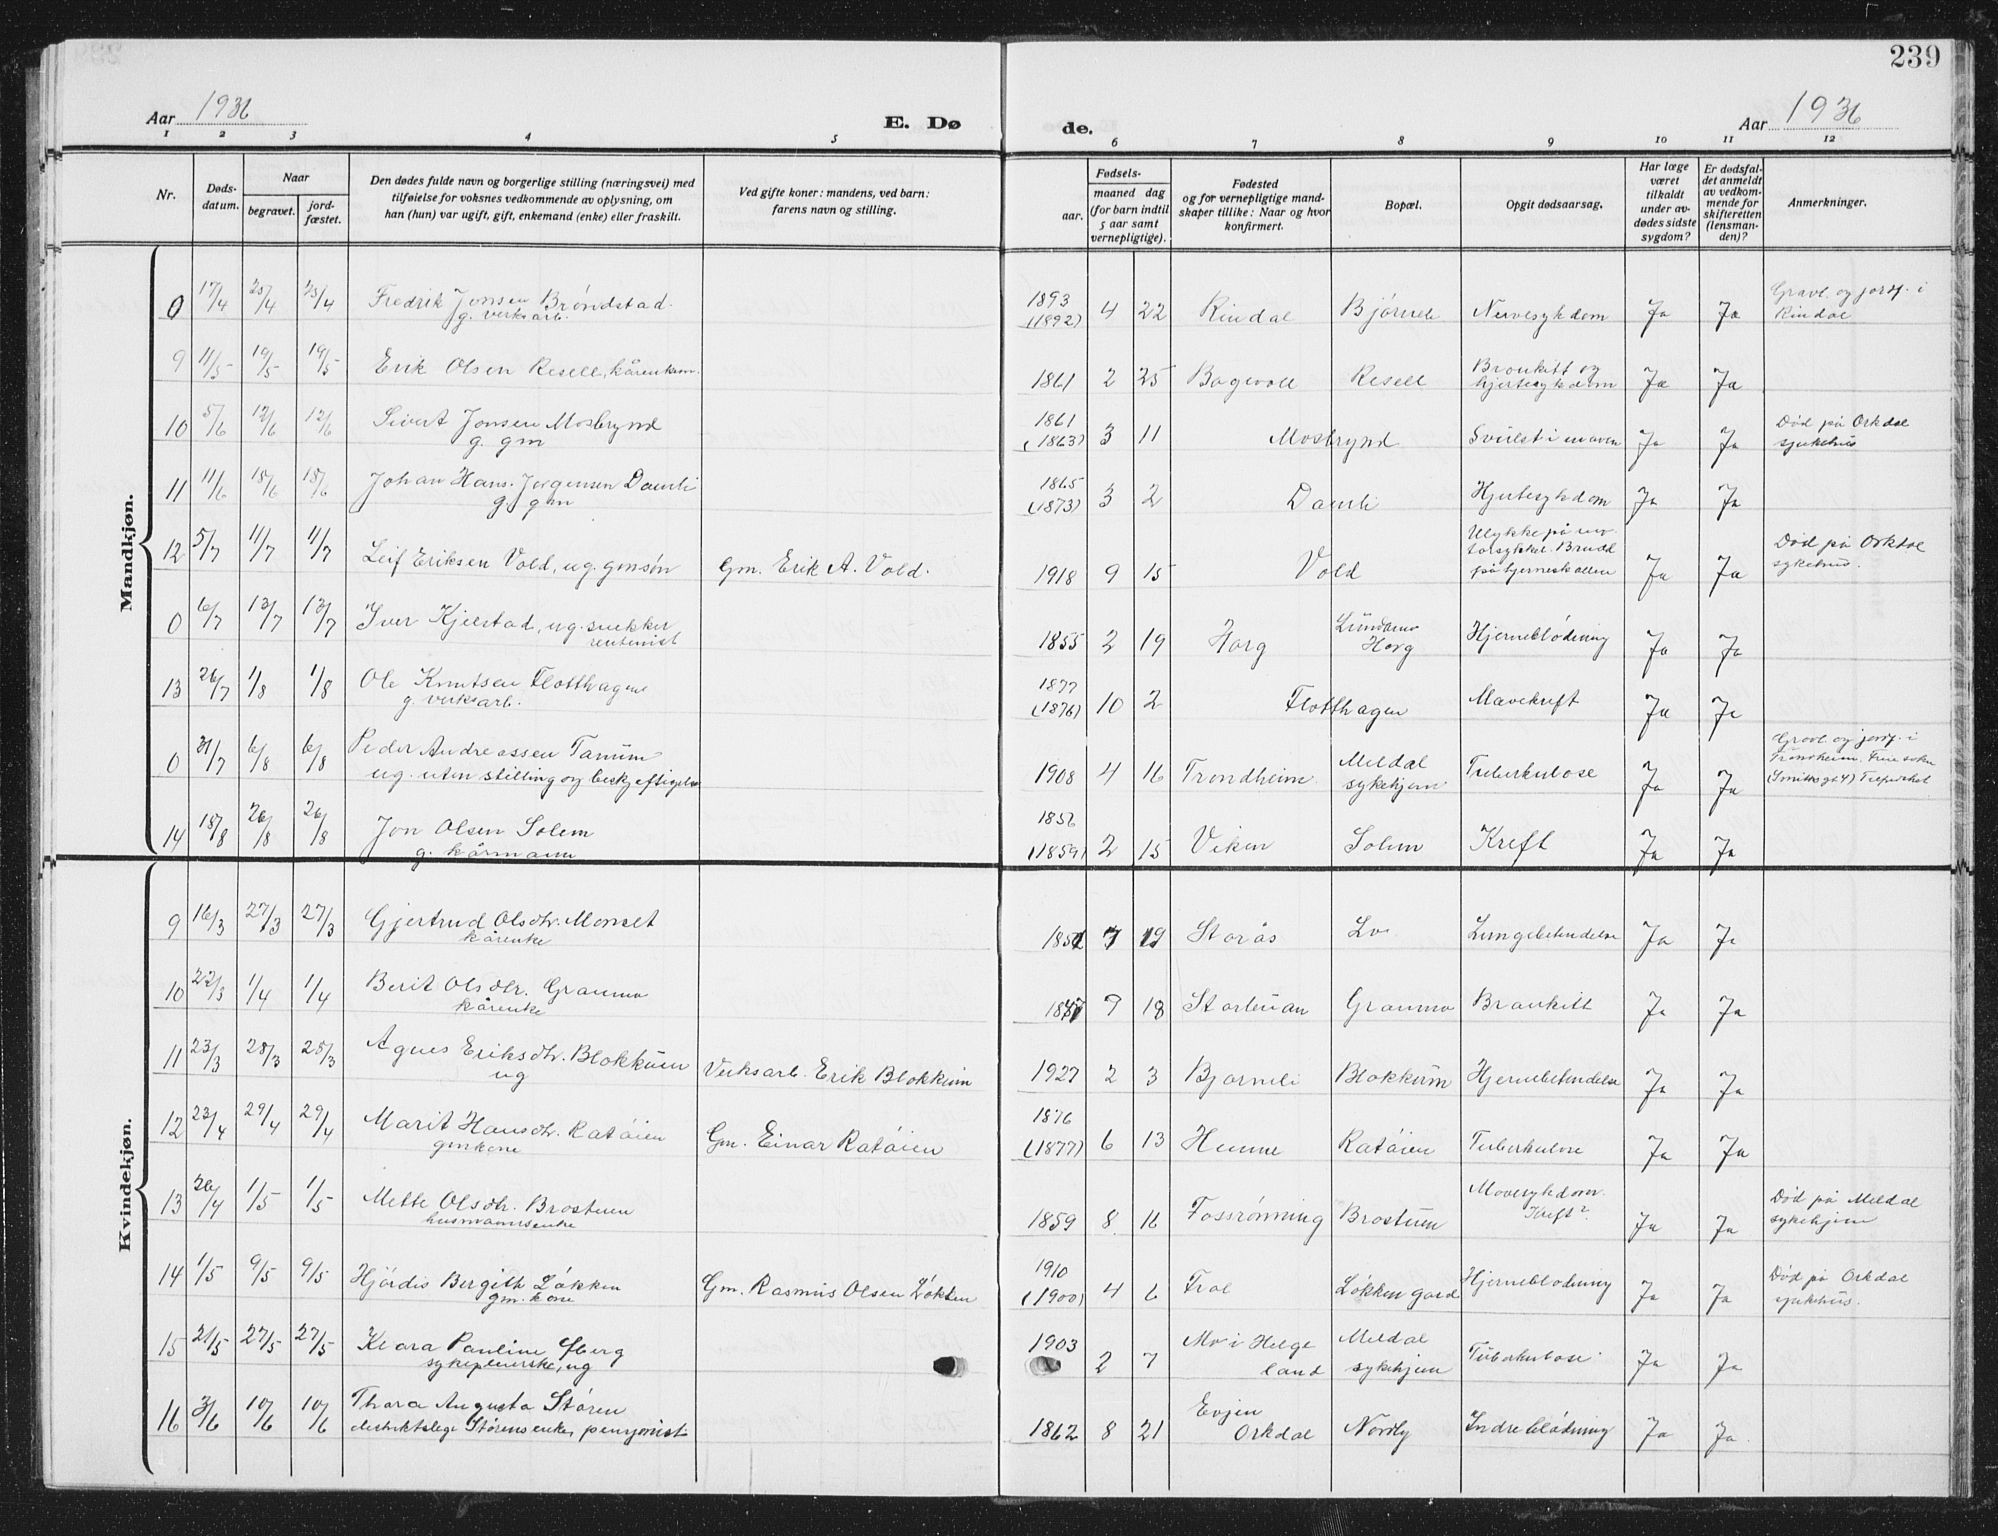 239
Aar 1936
E. Dø
de.
Aar 1936
1 2 3 4 5 6 7 8 9 10 11 12
Nr.
Døds-
datum.
Naar
begravet.
jord-
fæstet.
Den dødes fulde navn og borgerlige stilling (næringsvei) med
tilføielse for voksnes vedkommende av oplysning, om
han (hun) var ugift, gift, enkemand (enke) eller fraskilt.
Ved gifte koner: mandens, ved barn:
farens navn og stilling.
Fødsels-
aar.
maaned dag
(for barn indtil
5 aar samt
vernepligtige).
Fødested
og for vernepligtige mand-
skaper tillike: Naar og hvor
konfirmert.
Bopæl.
Opgit dødsaarsag.
Har læge
været
tilkaldt
under av-
dødes sidste
sygdom?
Er dødsfal-
det anmeldt
av vedkom-
mende for
skifteretten
(lensman-
den)?
Anmerkninger.
Mandkjøn.
0 17/4 25/4 25/4 Fredrik Jonsen Brøndstad
g. verksarb.
1893
(1892) 4 22 Rindal Bjørneli Nervesykdom Ja Ja
Gravl. og jordf. i
Rindal
9 11/5 19/5 19/5 Erik Olsen Resell, kårenkem.
1861 2 25 Bagevoll Resell Bronkitt og
hjertesykdom Ja Ja
10 5/6 12/6 12/6 Sivert Jonsen Mosbrynd
g. gm
1861
(1863) 3 11 Mosbrynd Svulst i maven Ja Ja
Død på Orkdal
sjukehus
11 11/6 18/6 18/6 Johan Hans Jørgensen Damli
g. gm
1865
(1873) 3 2 Damli Hjertesykdom Ja Ja
12 5/7 11/7 11/7 Leif Eriksen Vold, ug. gmsøn Gm. Erik A. Vold.
1918 9 15 Vold
Ulykke på mo-
torsykkel. Brudd
på hjerneskallen Ja Ja
Død på Orkdal
sykehus.
0 6/7 13/7 13/7 Iver Kjelstad, ug. snekker
rentenist
1855 2 19 Horg Lundamo
Horg Hjerneblødning Ja Ja
13 26/7 1/8 1/8 Ole Knutsen Flotthagen
g. verksarb.
1877
(1876) 10 2 Flotthagen Mavekreft Ja Ja
0 31/7 6/8 6/8 Peder Andreassen Tanum
ug. uten stilling og beskjeftigelse
1908 4 16 Trondheim Meldal
sykehjem Tuberkulose Ja Ja
Gravl. og jordf. i
Trondheim.
14 18/8 26/8 26/8 Jon Olsen Solem
g. kårmann
1856
(1859) 2 15 Viken Solem Kreft Ja Ja
Kvindekjøn.
9 16/3 27/3 27/3 Gjertrud Olsdtr. Monset
kårenke
1851 7 19 Storås Lo Lungebetendelse Ja Ja
10 22/3 1/4 1/4 Berit Olsdtr. Granmo
kårenke
9 18 Granmo Bronkitt Ja Ja
11 23/3 28/3 28/3 Agnes Eriksdtr. Blokkum
ug
Verksarb. Erik Blokkum
1927 2 3 Bjørneli Blokkum Hjernebetendelse Ja Ja
12 23/4 29/4 29/4 Marit Hansdtr. Ratøien
gmkone
Gm. Einar Ratøien
1876
(1877) 6 13 Hemne Ratøien Tuberkulose Ja Ja
13 26/4 1/5 1/5 Mette Olsdtr. Brostuen
husmannsenke
1859 8 16 Fossrønning Brostuen Mavesykdom.
Kreft? Ja Ja
Død på Meldal
sykehjem
14 1/5 9/5 9/5 Hjørdis Bergith Løkken
gm. kone
Gm. Rasmus Olsen Løkken
1910
(1900) 4 6 Frol Løkken gård Hjerneblødning Ja Ja
Død på Orkdal
sjukehus.
15 21/5 27/5 27/5 Klara Pauline Øberg
sykepleierske, ug
1903
2 7 Mo i Helge
land
Meldal
sykehjem Tuberkulose Ja Ja
16 3/6 10/6 10/6 Thora Augusta Støren
distriktslege Størens enke, pensjonist
1862 8 21 Evjen
Orkdal Nordly Indre blødning Ja Ja